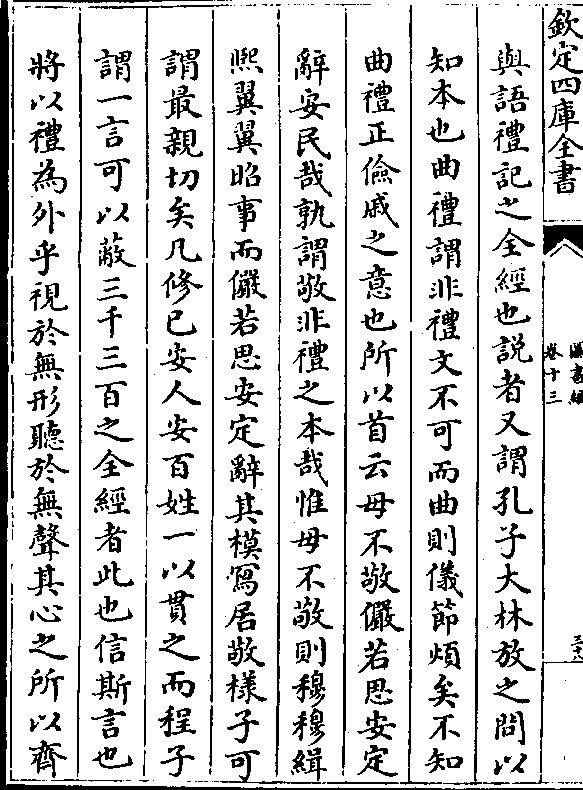 欽定四庫全書
卷十三
與語禮記之全經也説者又謂孔子大林放之問以
知本也曲禮謂非禮文不可而曲則儀節煩矣不知
曲禮正儉戚之意也所以首云毋不敬儼若思安定
辭安民哉孰謂敬非禮之本哉惟毋不敬則穆穆緝
熙翼翼昭事而儼若思安定辭其模寫居敬様子可
謂最親切矣凡修已安人安百姓一以貫之而程子
謂一言可以蔽三千三百之全經者此也信斯言也
將以禮為外乎視於無形聽於無聲其心之所以齊